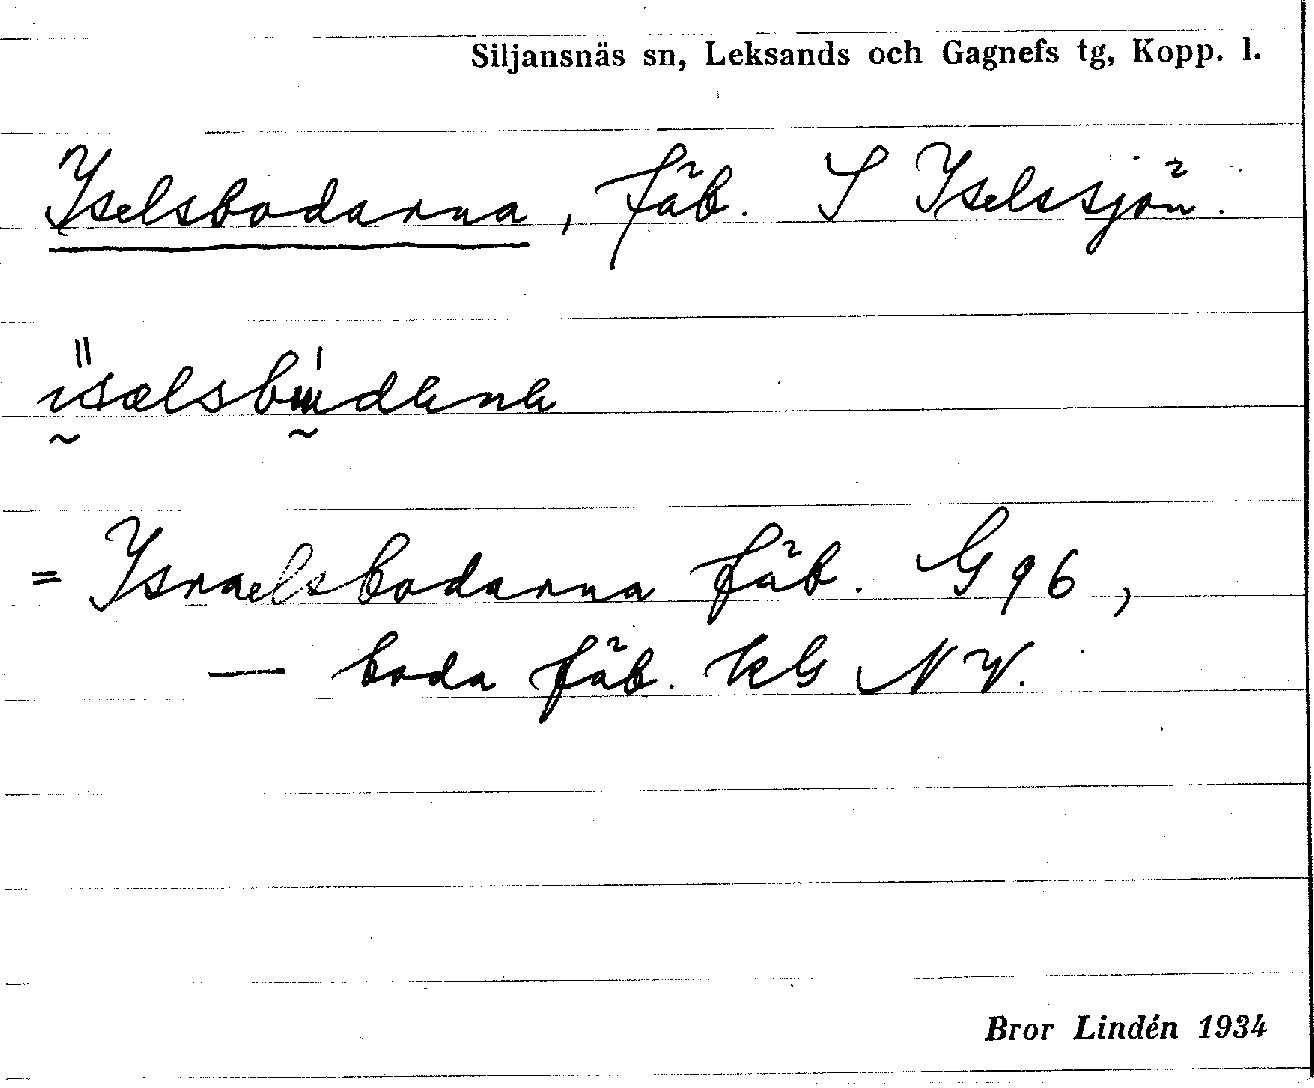 Siljansnäs sn, Leksands och Gagnefs tg, Kopp. l.
Iselsbodarna, fäb. S Iselssjön.
= Israelsbodarna fäb. G 96,
— boda fäb. kG NV.
Bror Lindén 1934